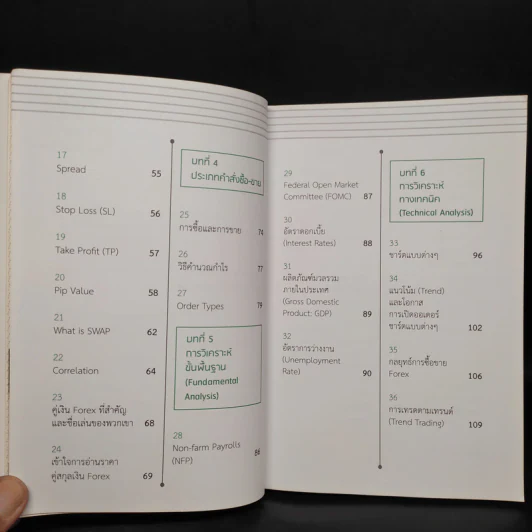 17
Spread 55
18
Stop Loss (SL) 56
19
Take Profit (TP) 57
20
Pip Value 58
21
What is SWAP 62
22
Correlation 64
23
คู่เงิน Forex ที่สำคัญ
และชื่อเล่นของพวกเขา 68
24
เข้าใจการอ่านราคา
คู่สกุลเงิน Forex 69
บทที่ 4
ประเภทคำสั่งซื้อ-ขาย
25
การซื้อและการขาย 74
26
วิธีคำนวณกำไร 77
27
Order Types 79
บทที่ 5
การวิเคราะห์
ขั้นพื้นฐาน
(Fundamental
Analysis)
28
Non-farm Payrolls
(NFP) 86
29
Federal Open Market
Committee (FOMC) 87
30
อัตราดอกเบี้ย
(Interest Rates) 88
31
ผลิตภัณฑ์มวลรวม
ภายในประเทศ
(Gross Domestic
Product: GDP) 89
32
อัตราการว่างงาน
(Unemployment
Rate) 90
บทที่ 6
การวิเคราะห์
ทางเทคนิค
(Technical Analysis)
33
ชาร์ตแบบต่างๆ 96
34
แนวโน้ม (Trend)
และโอกาส
การเปิดออเดอร์
ชาร์ตแบบต่างๆ 102
35
กลยุทธ์การซื้อขาย
Forex 106
36
การเทรดตามเทรนด์
(Trend Trading) 109